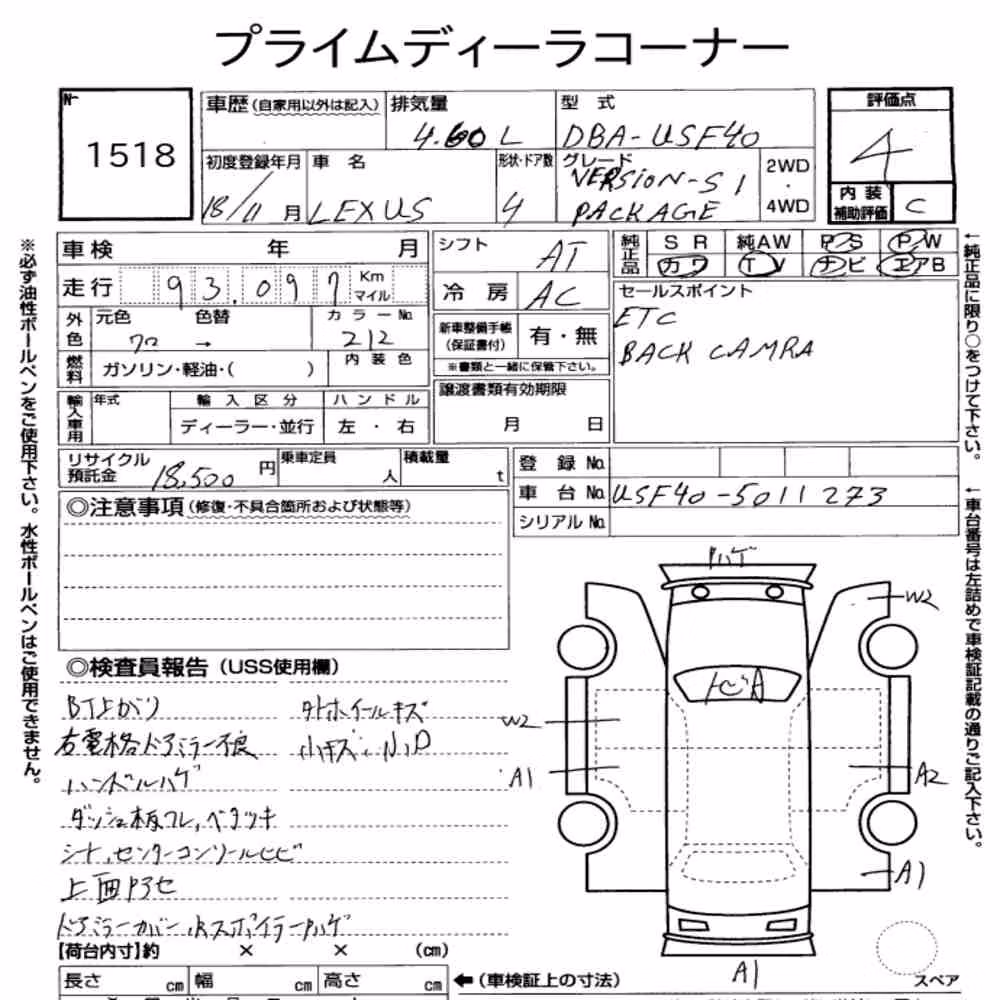 プライムディーラコーナー
No
1518
車歴(自家用以外は記入)
排気量
4.60 L
型 式
DBA-USF40
評価点
4
初度登録年月
18/11 月
車 名
LEXUS
形状・ドア数
4
グレード
VERSION-S I
PACKAGE
2WD
・
4WD
内 装
補助評価
C
車検 年 月
シフト
AT
純正品
S R 純AW P・S P・W
カワ TV ナビ エアB
走行 93,097 Km
マイル
冷 房 AC
セールスポイント
ETC
BACK CAMRA
外色
元色 色替
クロ →
カラーNo
212
新車整備手帳
(保証書付)
有・無
※書類と一緒に保管下さい。
燃料
ガソリン・軽油・( )
内 装 色
譲渡書類有効期限
月 日
輸入車用
年式
輸 入 区 分
ディーラー・並行
ハンドル
左 ・ 右
リサイクル
預託金 18,500 円
乗車定員
人
積載量
t
登 録 No
車 台 No USF40-5011273
シリアル No
◎注意事項(修復・不具合箇所および状態等)
◎検査員報告(USS使用欄)
BT上がり
外ホイールキズ
右電格ドアミラー不良
小キズ・小凹
ハンドルハゲ
ダッシュ板フレ,ベタツキ
シート,センターコンソールヒビ
ドアミラーカバー スポイラーハゲ
ハゲ
W2
W2
A1
A2
A1
A1
スペア
【荷台内寸】約 × × (cm)
長さ cm 幅 cm 高さ cm
←(車検証上の寸法)
※必ず油性ボールペンをご使用下さい。水性ボールペンはご使用できません。
←純正品に限り○をつけて下さい。
←車台番号は左詰めで車検証記載の通りご記入下さい。